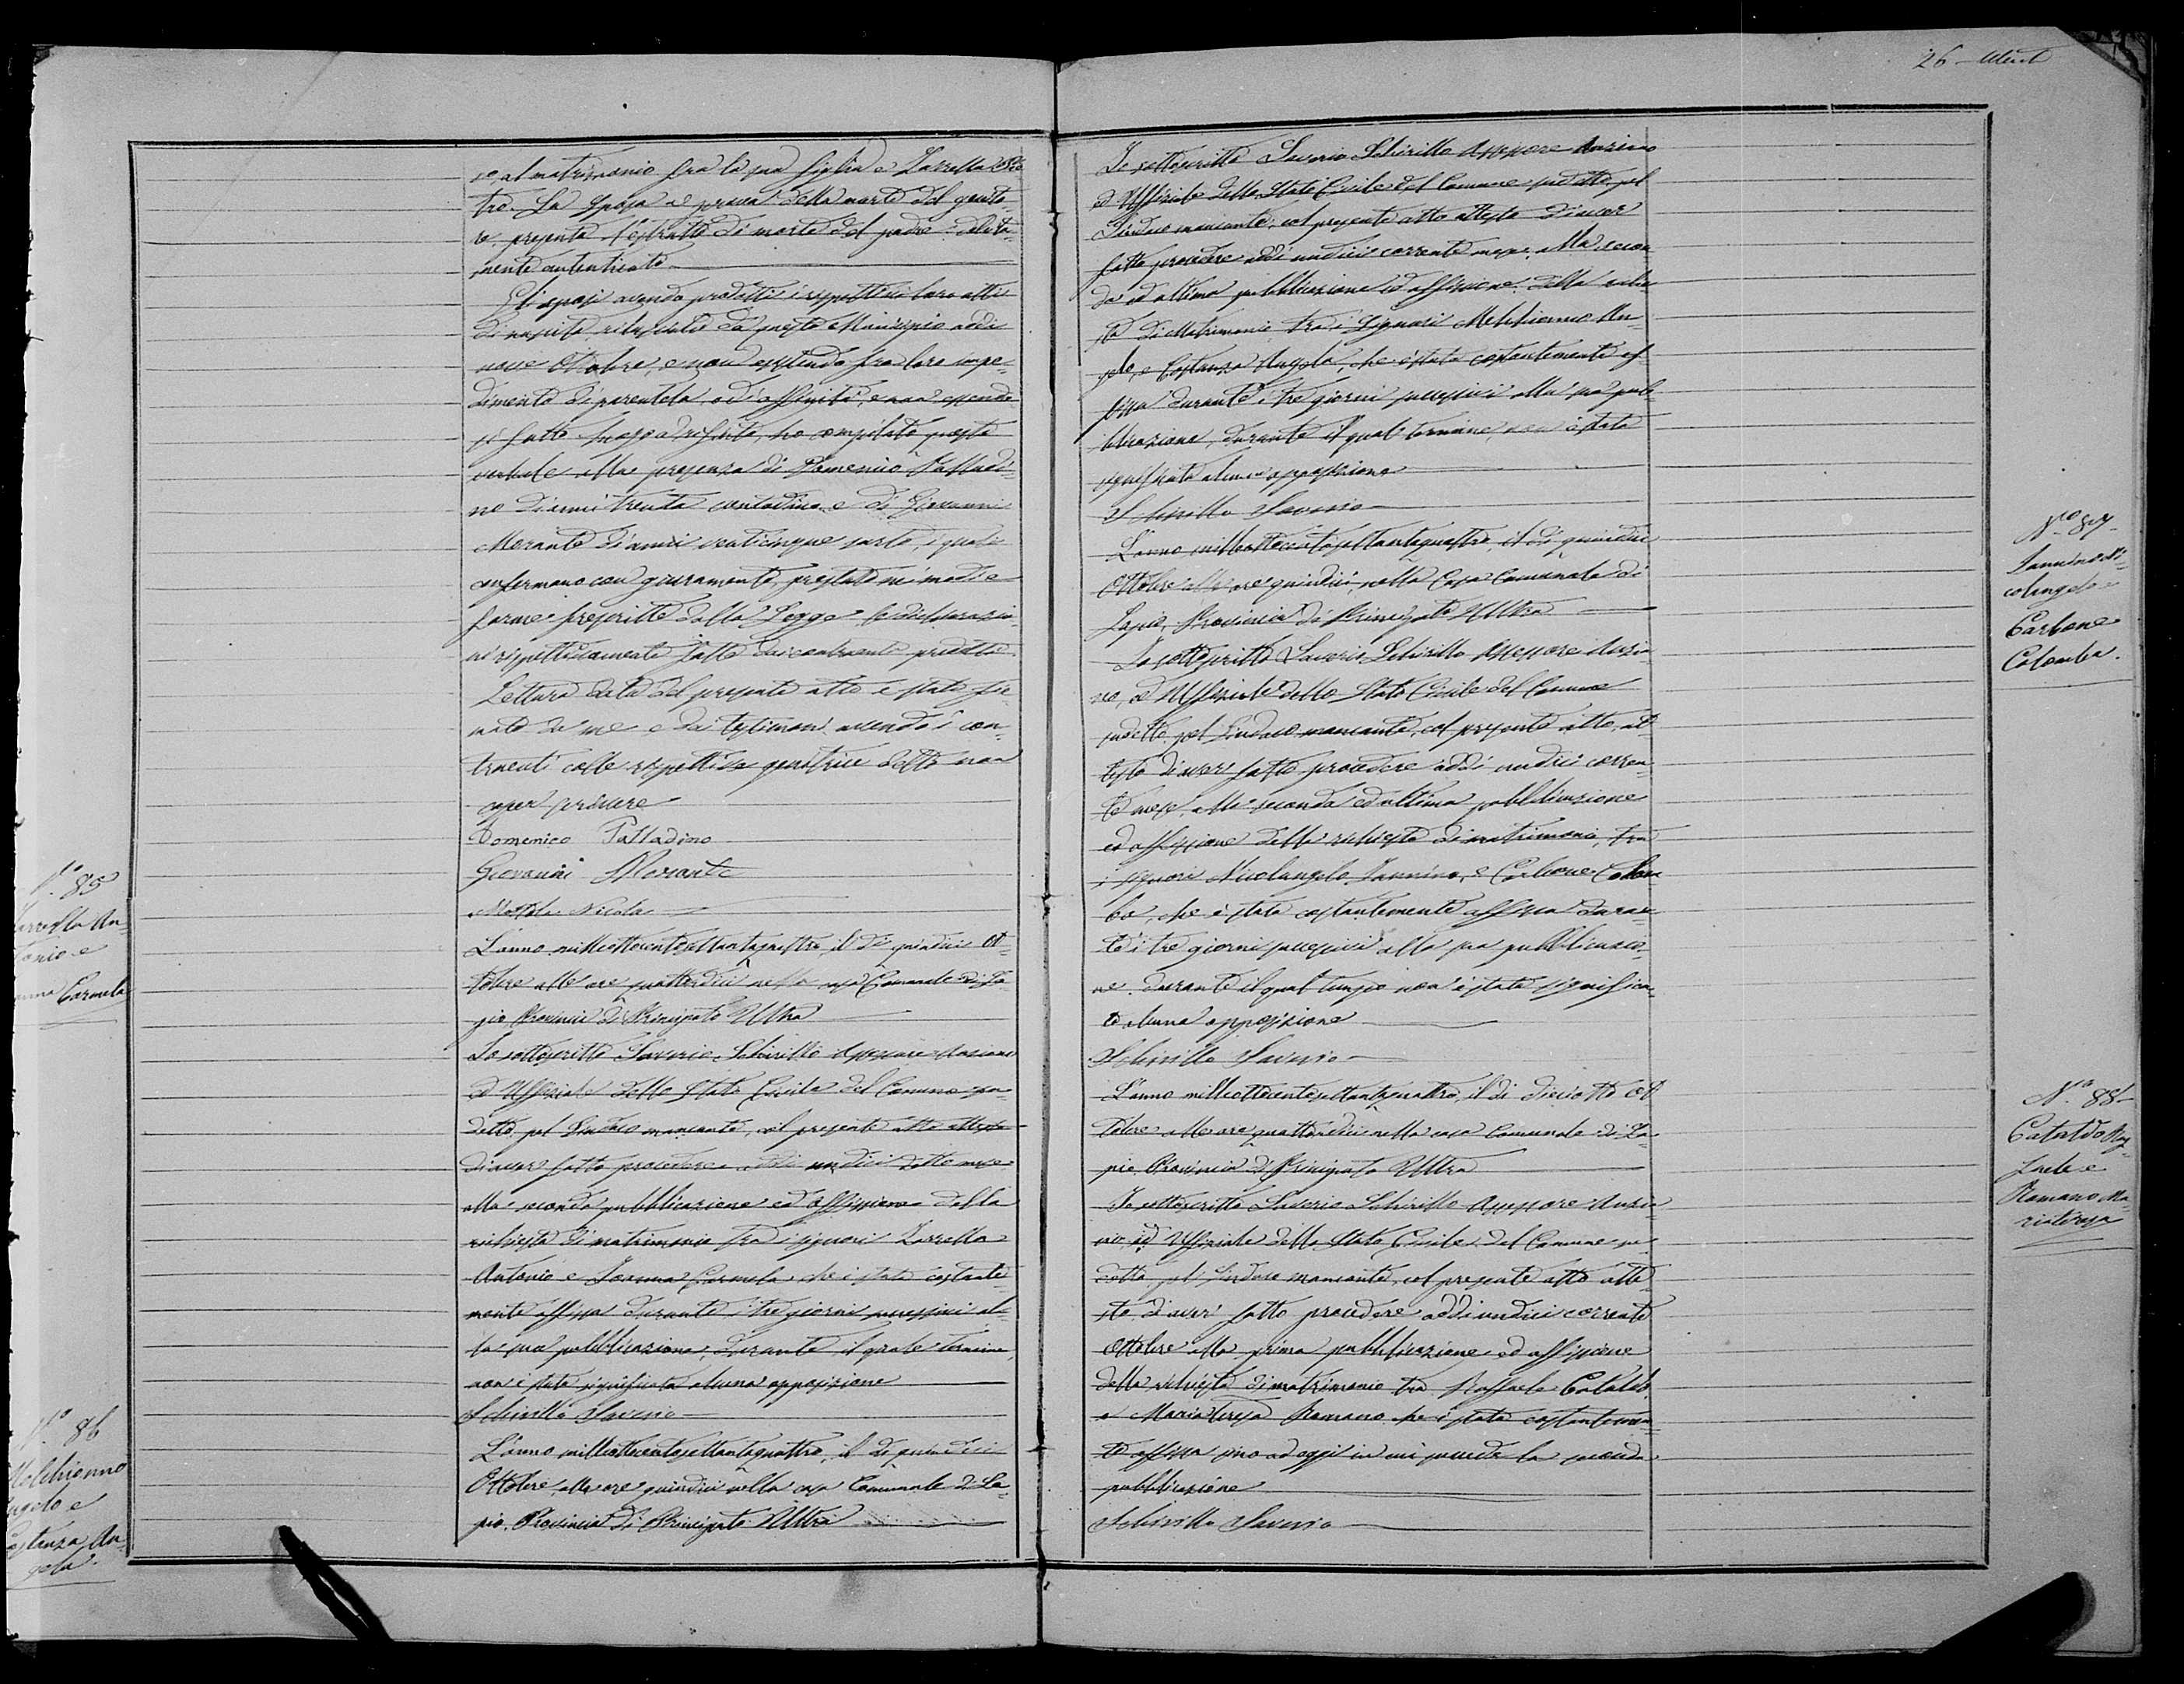 26
se al matrimonio fra la sua figlia e Zarrella
tro. La sposa a prova della morte del genito-
re, presenta l'estratto di morte del padre debita-
mente autenticato
Gli sposi avendo prodotti i rispettivi loro atti
di nascita rilasciati da questo Municipio addì
nove Ottobre, e non esistendo fra loro impe-
dimento di parentela, o di affinità, e non essendo-
si fatto rifiuto, ho compilato questo
verbale alla presenza di Domenico Palladi-
no di anni trenta contadino e di Giovanni
Morante di anni venticinque sarto, i quali
confermano con giuramento, prestato nei modi e
forme prescritte dalla Legge le dichiarazio-
ni rispettivamente fatte dai contraenti predetti.
Lettura data del presente atto è stato fir-
mato da me e dai testimoni avendo i con-
traenti colle rispettive genitrice detto non
saper scrivere
Domenico Palladino
Giovanni Morante
Nicola
N.o 85
Zarrella An-
tonio e
Carmela
L'anno milleottocentosettantaquattro, il dì quindici Ot-
tobre alle ore quattordici nella casa Comunale di La-
pio Provincia di Principato Ultra
Io sottoscritto Saverio Schirillo Assessore Anziano
ed Uffiziale dello Stato Civile del Comune su-
detto pel Sindaco mancante, col presente atto attesto
di aver fatto procedere addì undici detto mese
alla seconda pubblicazione ed affissione della
richiesta di matrimonio tra i signori Zarrella
Antonio e Carmela, che è stata costante-
mente affissa durante i tre giorni successivi al-
la sua pubblicazione, durante il quale termine,
non è stata significata alcuna opposizione
Schirillo Saverio
N.o 86
Melchionno
Angelo e
Costanza An-
gela
L'anno milleottocentosettantaquattro, il dì quindici
Ottobre, alle ore quindici nella casa Comunale di La-
pio, Provincia di Principato Ultra
Io sottoscritto Saverio Schirillo Assessore Anziano
ed Uffiziale dello Stato Civile del Comune sudetto pel
Sindaco mancante, col presente atto attesto di aver
fatto procedere addì undici corrente mese, alla secon-
da ed ultima pubblicazione ed affissione della richie-
sta di Matrimonio tra i Signori Melchionno An-
gelo, e Costanza Angela, che è stata costantemente af-
fissa durante i tre giorni successivi alla sua pub-
blicazione, durante il qual termine, non è stata
significata alcuna opposizione
Schirillo Saverio
N.o 87
Iannino Ni-
colangelo e
Carbone
Colomba.
L'anno milleottocentosettantaquattro, il dì quindici
Ottobre alle ore quindici, nella Casa Comunale di
Lapio, Provincia di Principato Ultra
Io sottoscritto Saverio Schirillo Assessore Anzia-
no, ed Uffiziale dello Stato Civile del Comune
sudetto pel Sindaco mancante, col presente atto, at-
testo di aver fatto procedere addì undici corren-
te mese, alla seconda ed ultima pubblicazione
ed affissione della richiesta di matrimonio, tra
i signori Nicolangelo Iannino, e Carbone Colom-
ba, che è stata costantemente affissa duran-
te i tre giorni successivi alla sua pubblicazio-
ne, durante il qual tempo non è stata significa-
ta alcuna opposizione
Schirillo Saverio
N.o 88
Cataldo Raf-
faele e
Romano Ma-
riateresa
L'anno milleottocentosettantaquattro, il dì dieciotto Ot-
tobre alle ore quattordici nella casa Comunale di La-
pio, Provincia di Principato Ultra
Io sottoscritto Saverio Schirillo Assessore Anzia-
no, ed Uffiziale dello Stato Civile del Comune su-
detto, pel Sindaco mancante, col presente atto atte-
sto di aver fatto procedere addì undici corrente
Ottobre alla prima pubblicazione ed affissione
della richiesta di matrimonio tra Raffaele Cataldo
e Mariateresa Romano che è stata costantemen-
te affissa sino ad oggi in cui succede la seconda
pubblicazione
Schirillo Saverio